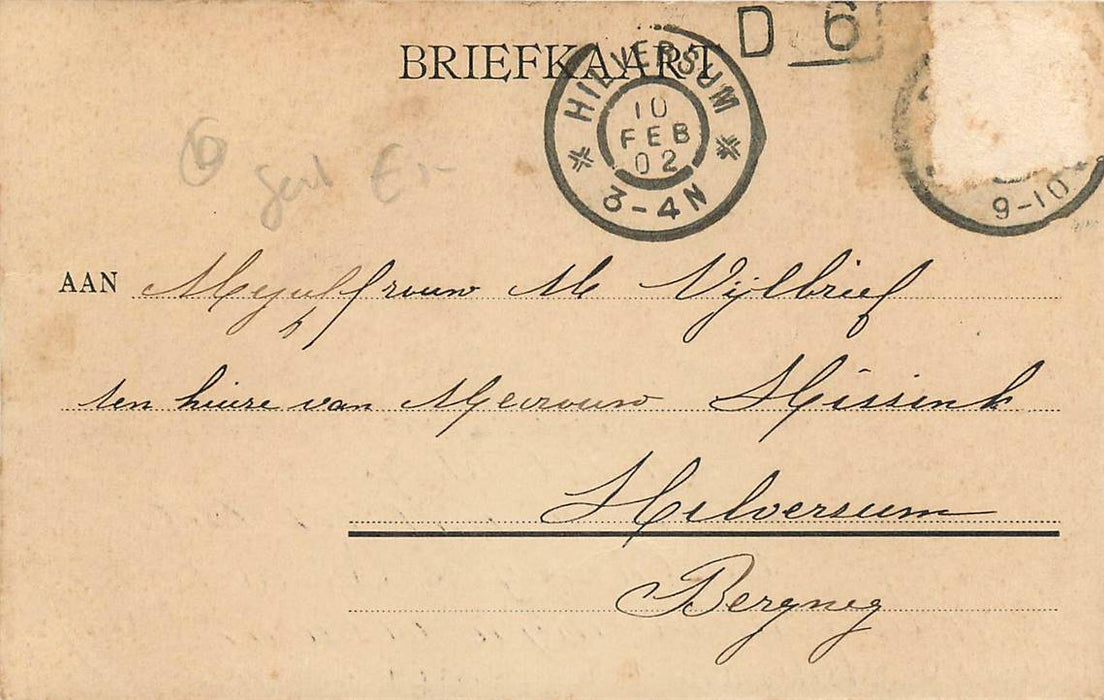 BRIEFKAART
D 6
HILVERSUM
10
FEB
02
3-4N
9-10
AAN Mejuffrouw M Vijlbrief
ten huize van Mevrouw Hissink
Hilversum
Bergweg